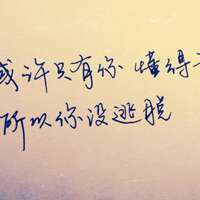 或许只有你 懂得
所以你没逃脱